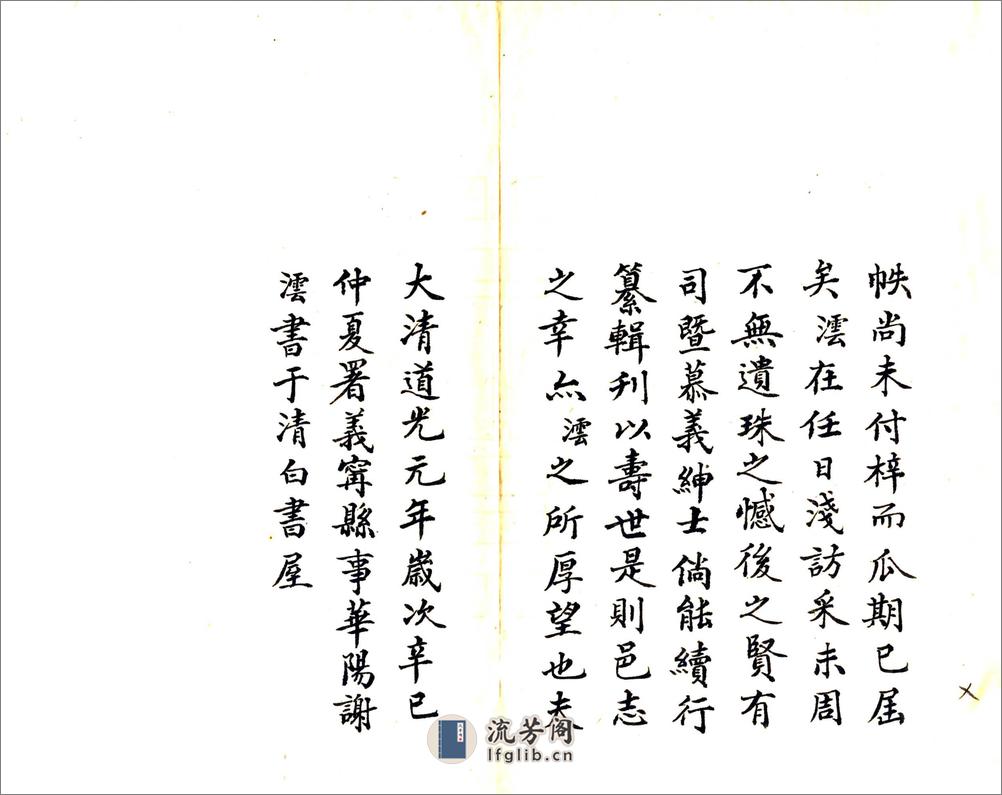 帙尚未付梓而瓜期已屆
矣澐在任日淺訪采未周
不無遺珠之憾後之賢有
司暨慕義紳士倘能續行
纂輯刊以壽世是則邑志
之幸亦澐之所厚望也夫
大清道光元年歲次辛巳
仲夏署義寧縣事華陽謝
澐書于清白書屋
流芳阁
lfglib.cn